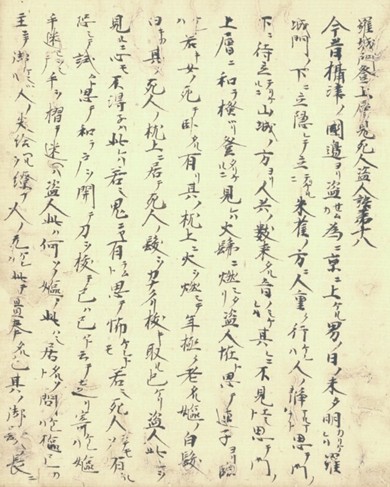 羅城門登上層見死人盗人語第十八
今昔摂津ノ国邊ヨリ盗セムガ為ニ京ニ上ケル男ノ日ノ未タ明カリケレバ羅
城門ノ下ニ立隠レテ立テリケルニ朱雀ノ方ニ人重ク行ケレバ人ノ静マルマデト思テ門ノ
下ニ待立テリケルニ山城ノ方ヨリ人共ノ数来タル音ノシケレバ其レニ不見エジト思テ門ノ
上層ニ和ラ掻ツリ登タリケルニ見レバ火髴ニ燃シタリ盗人怪ト思テ連子ヨリ臨
ケレバ若キ女ノ死テ臥タル有リ其ノ枕上ニ火ヲ燃シテ年極ク老タル嫗ノ白髪
白キガ其ノ死人ノ枕上ニ居テ死人ノ髪ヲカナグリ抜キ取ル也ケリ盗人此レヲ
見ルニ心モ不得ネバ此レハ若シ鬼ニヤ有ラムト思テ怖ケレドモ若シ死人ニテモゾ有ル
恐シテ試ムト思テ和ラ戸ヲ開テ刀ヲ抜テ己ハ己ハト云テ走リ寄ケレバ嫗
手迷ヒヲシテ手ヲ摺テ迷ヘバ盗人此ハ何ゾノ嫗ノ此ハシ居タルゾト問ケレバ嫗己ガ
主ニテ御マシツル人ノ失給ヘルヲ繚フ人ノ無ケレバ此テ置奉タル也其ノ御髪ノ長ニ